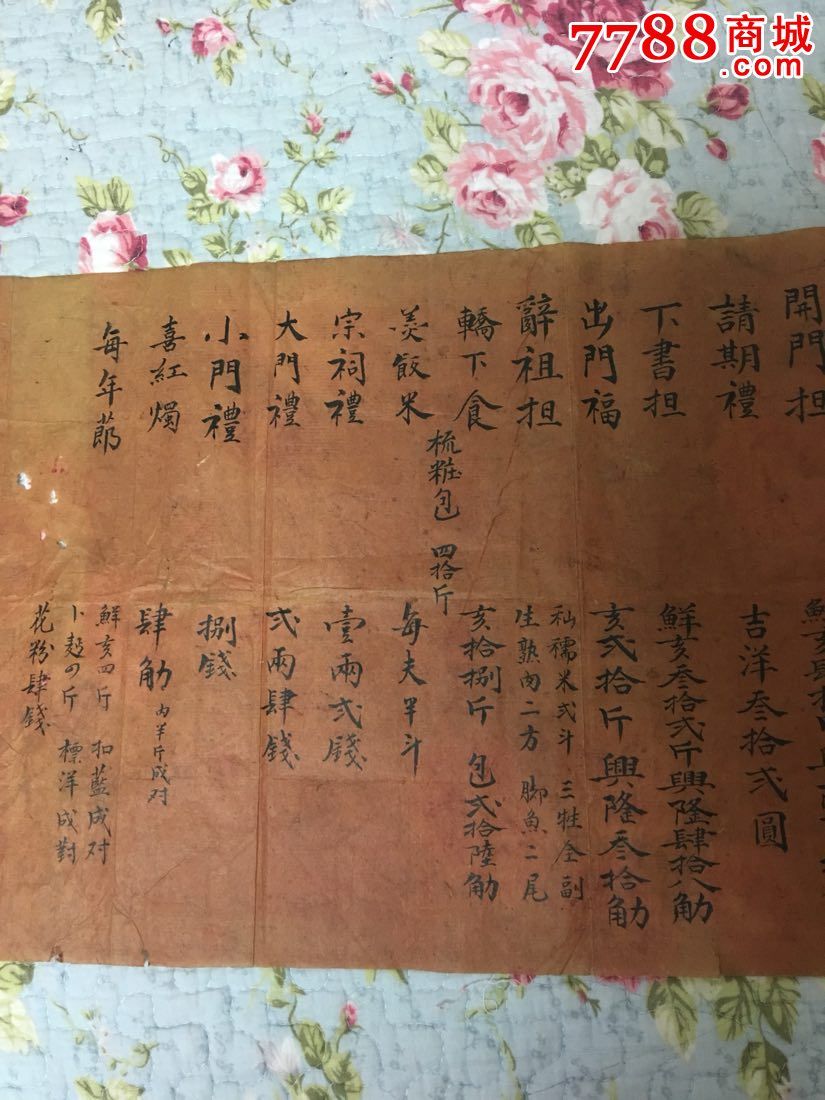 7788商城
.com
開門担
請期禮
吉洋叁拾弍圓
下書担
鮮亥叁拾弍斤興隆肆拾八觔
出門福
亥弍拾斤 興隆叁拾觔
辭祖担
秈糯米弍斗 三牲全副
生熟肉二方 脚魚二尾
轎下食
亥拾捌斤 包弍拾陸觔
梳粧包 四拾斤
羙飯米
每夫半斗
宗祠禮
壹兩弍錢
大門禮
弍兩肆錢
小門禮
捌錢
喜紅燭
肆觔 內半斤成对
每年節
鮮亥四斤 扣藍成对
卜麪四斤 標洋成對
花粉肆錢